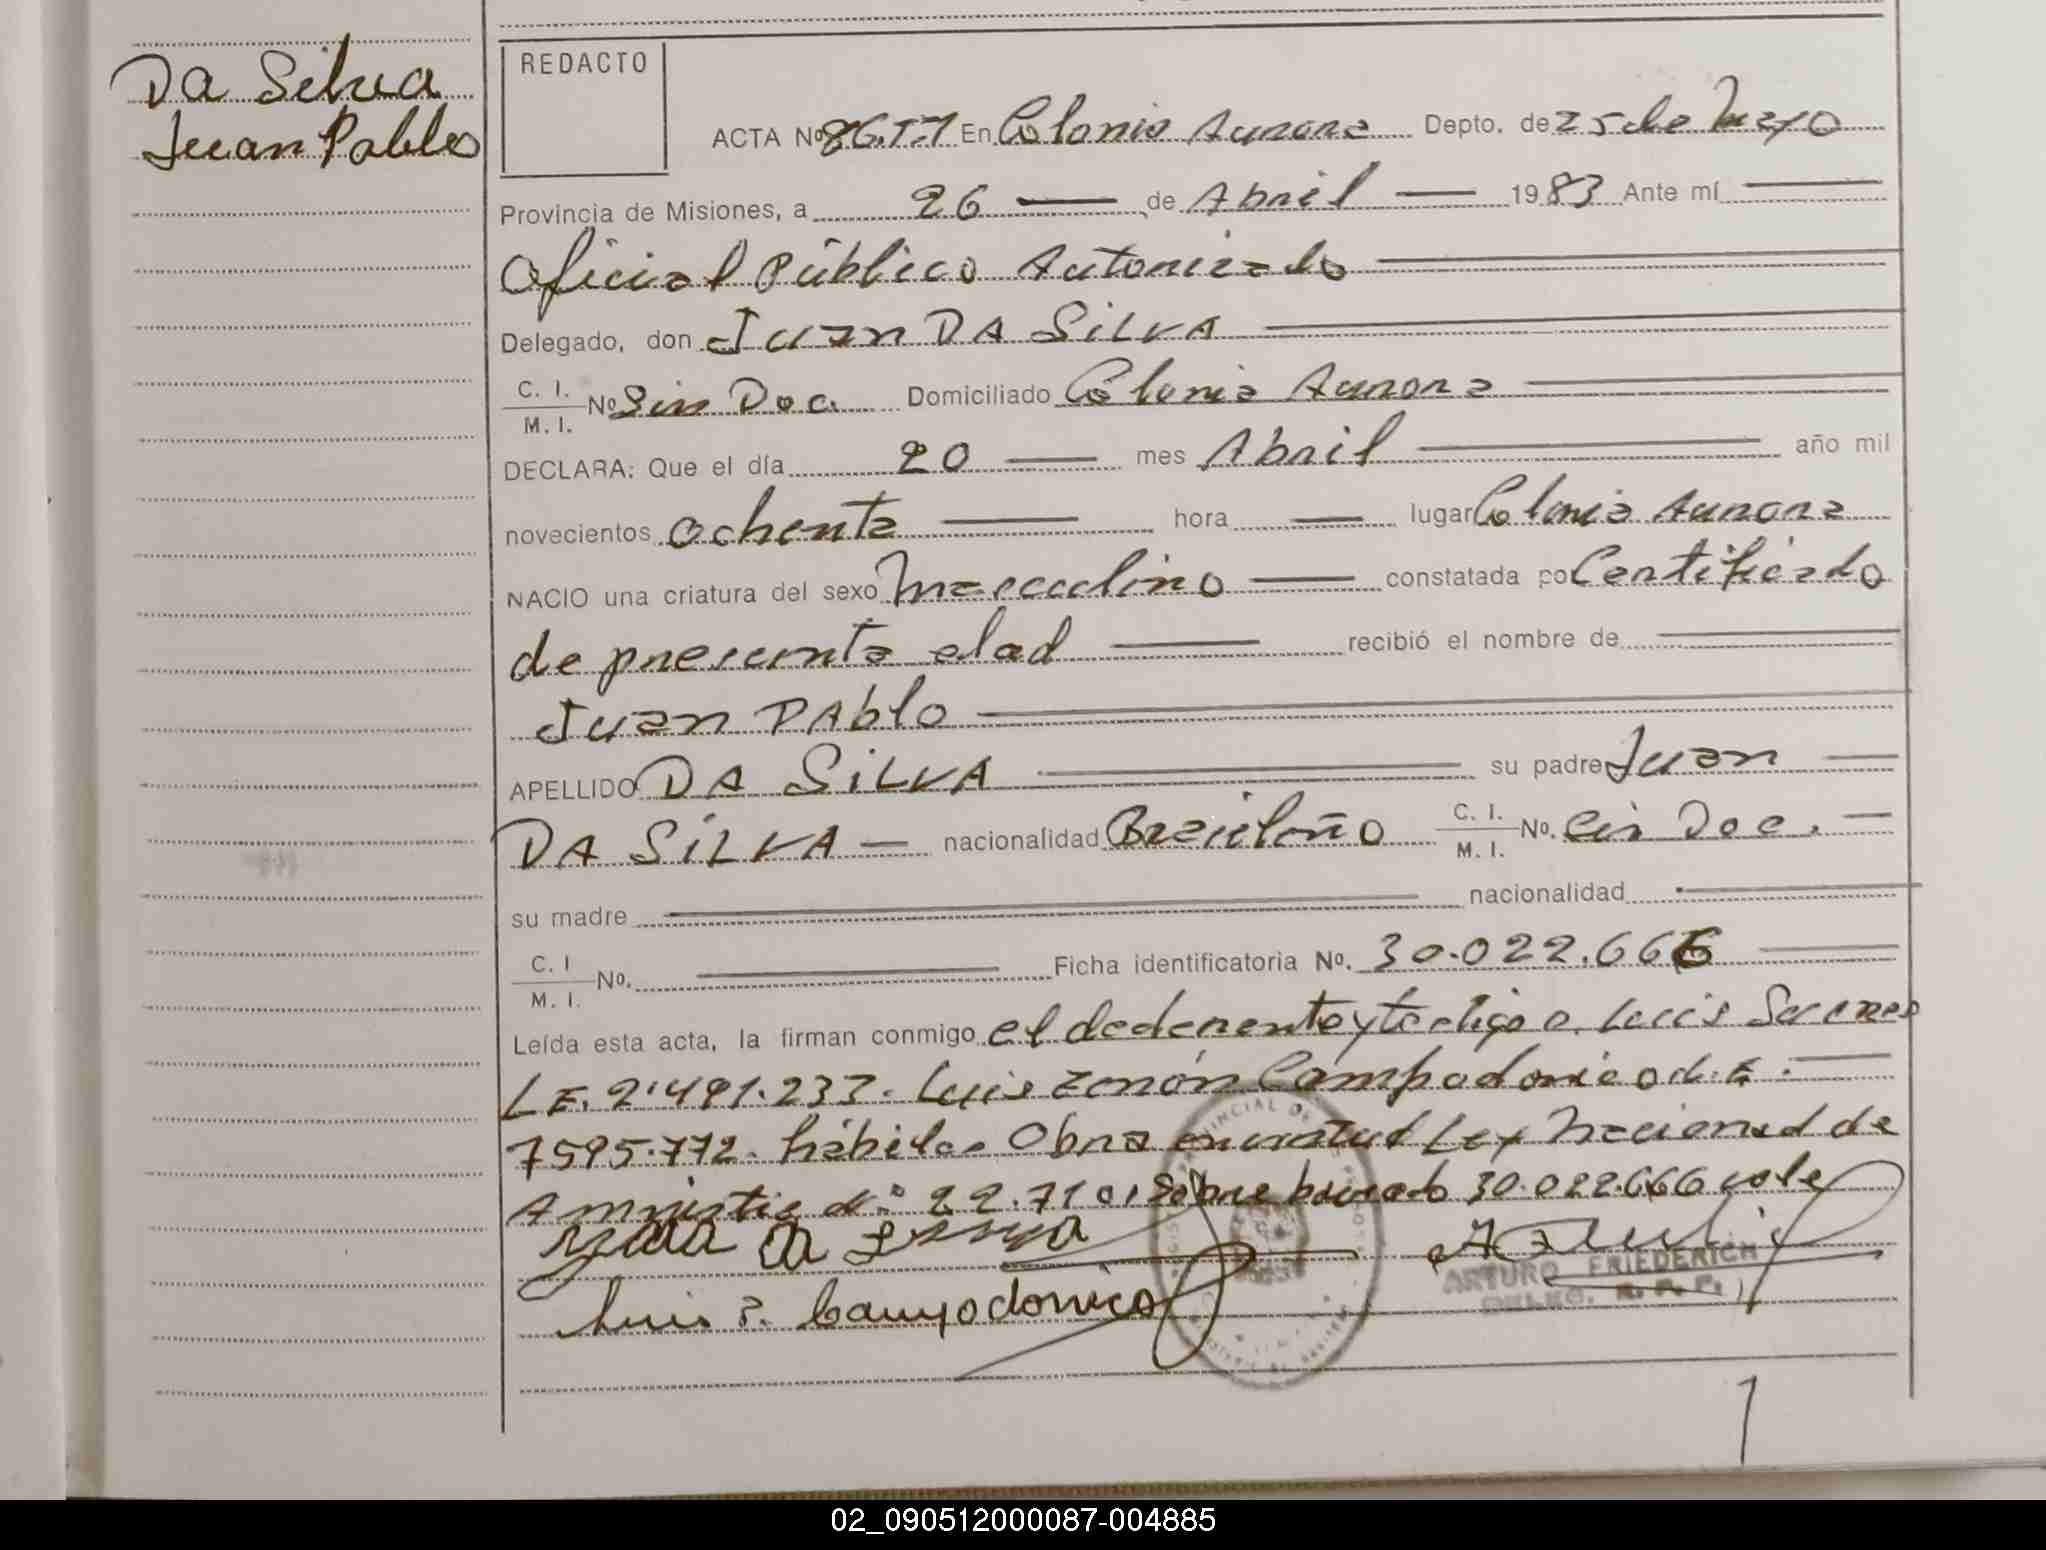 Da Silva
Juan Pablo
REDACTO
ACTA Nº 86.T1 En Colonia Aurora Depto. de 25 de Mayo
Provincia de Misiones, a 26 de Abril 1983 Ante mí
Oficial Público Autorizado
Delegado, don Juan DA SiLVA
C. I. M. I. Nº Sin Doc. Domiciliado Colonia Aurora
DECLARA: Que el día 20 mes Abril año mil
novecientos ochenta hora lugar Colonia Aurora
NACIO una criatura del sexo Masculino constatada po Certificado
de presunta edad recibió el nombre de
Juan PAblo
APELLIDO DA SiLVA su padre Juan
DA SiLVA nacionalidad Brasileño C. I. M. I. No. Sin Doc.
su madre nacionalidad
C. I M. I. No. Ficha identificatoria No. 30.022.666
Leída esta acta, la firman conmigo el declarante y testigos. Luis Suarez
LE. 2.491.233. Luis Zenón Campodonico L.E.
7595.772. hábiles Obra en virtud Ley Nacional de
Amnistia Nº 22.710, Sobre borrado 30.022.666 vale
Luis Z. Campodonico
ARTURO FRIEDERICH
DELEG. R. P. P.
1
02_090512000087-004885